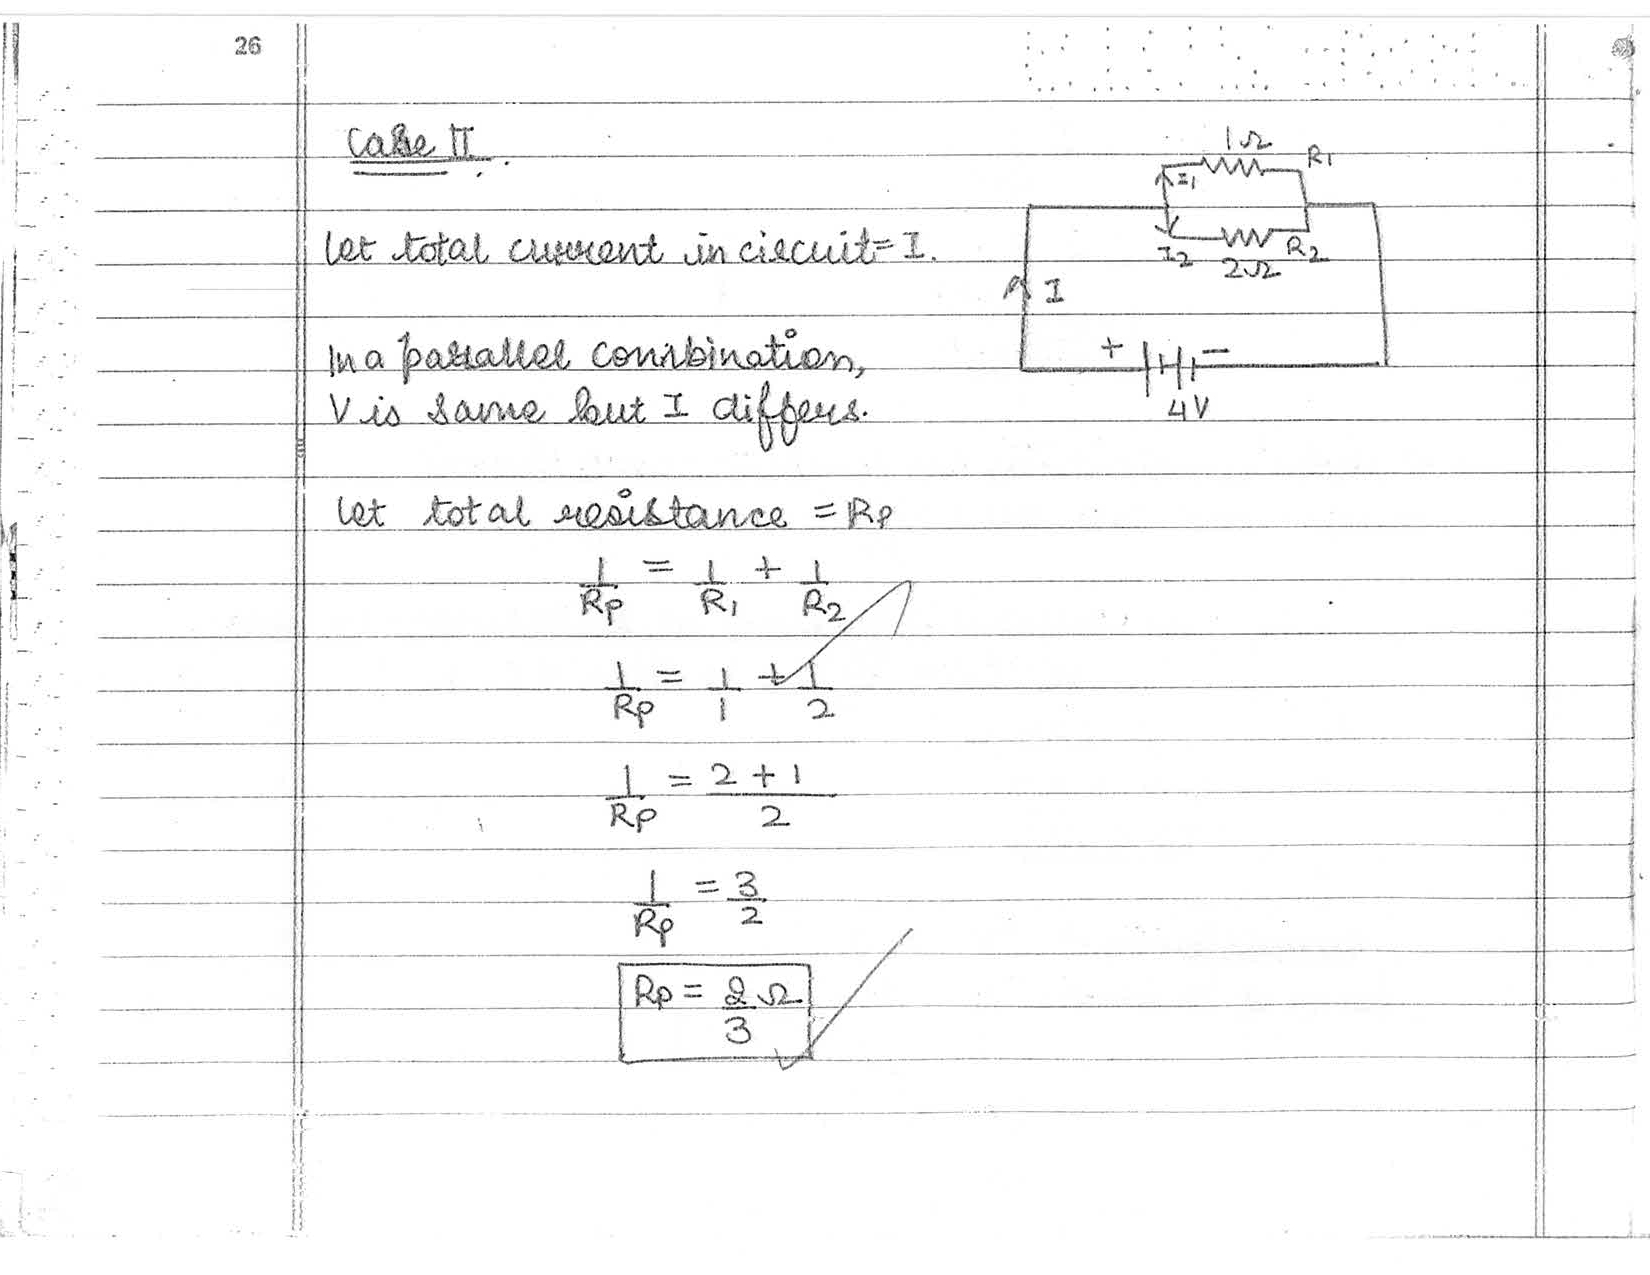 26
Case II.
1Ω
R1
I1
let total current in circuit = I.
I2
R2
2Ω
I
In a parallel combination,
+ -
V is same but I differs.
4V
let total resistance = Rp
1/Rp = 1/R1 + 1/R2
1/Rp = 1/1 + 1/2
1/Rp = 2+1/2
1/Rp = 3/2
Rp = 2/3 Ω